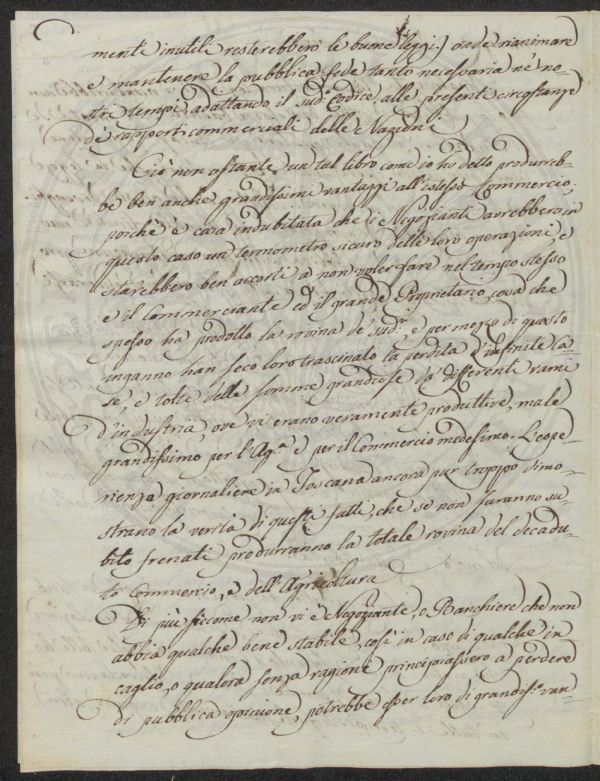 menti inutili resterebbero le buone leggi) onde rianimare
e mantenere la pubblica fede tanto necessaria ne' no-
stri tempi, adattando il sud.º Codice alle presenti circostanze
de' rapporti commerciali delle Nazioni.
Ciò non ostante un tal libro come io ho detto produrreb-
be ben anche grandissimi vantaggi all'istesso Commercio,
poichè è cosa indubitata che i Negozianti avrebbero in
questo caso un termometro sicuro delle loro operazioni, e
starebbero ben accorti a non voler fare nel tempo stesso
e il Commerciante ed il grande Proprietario, cosa che
spesso ha prodotto la rovina de' sud.i e per mezzo di questo
inganno han seco loro trascinato la perdita d'infinite ca-
se, e tolte delle somme grandiose da differenti rami
d'industria, ove vi erano veramente produttive, male
grandissimo per l'Ag.ª e per il Commercio medesimo. L'espe-
rienza giornaliera in Toscana ancora pur troppo dimo-
strano la verità di questi fatti, che se non saranno su-
bito frenati produrranno la totale rovina del decadu-
to Commercio, e dell'Agricoltura.
Di più siccome non vi è Negoziante, o Banchiere che non
abbia qualche bene stabile, così in caso di qualche in
caglio, o qualora senza ragione principiassero a perdere
di pubblica opinione, potrebbe esser loro di grandiss.i van-